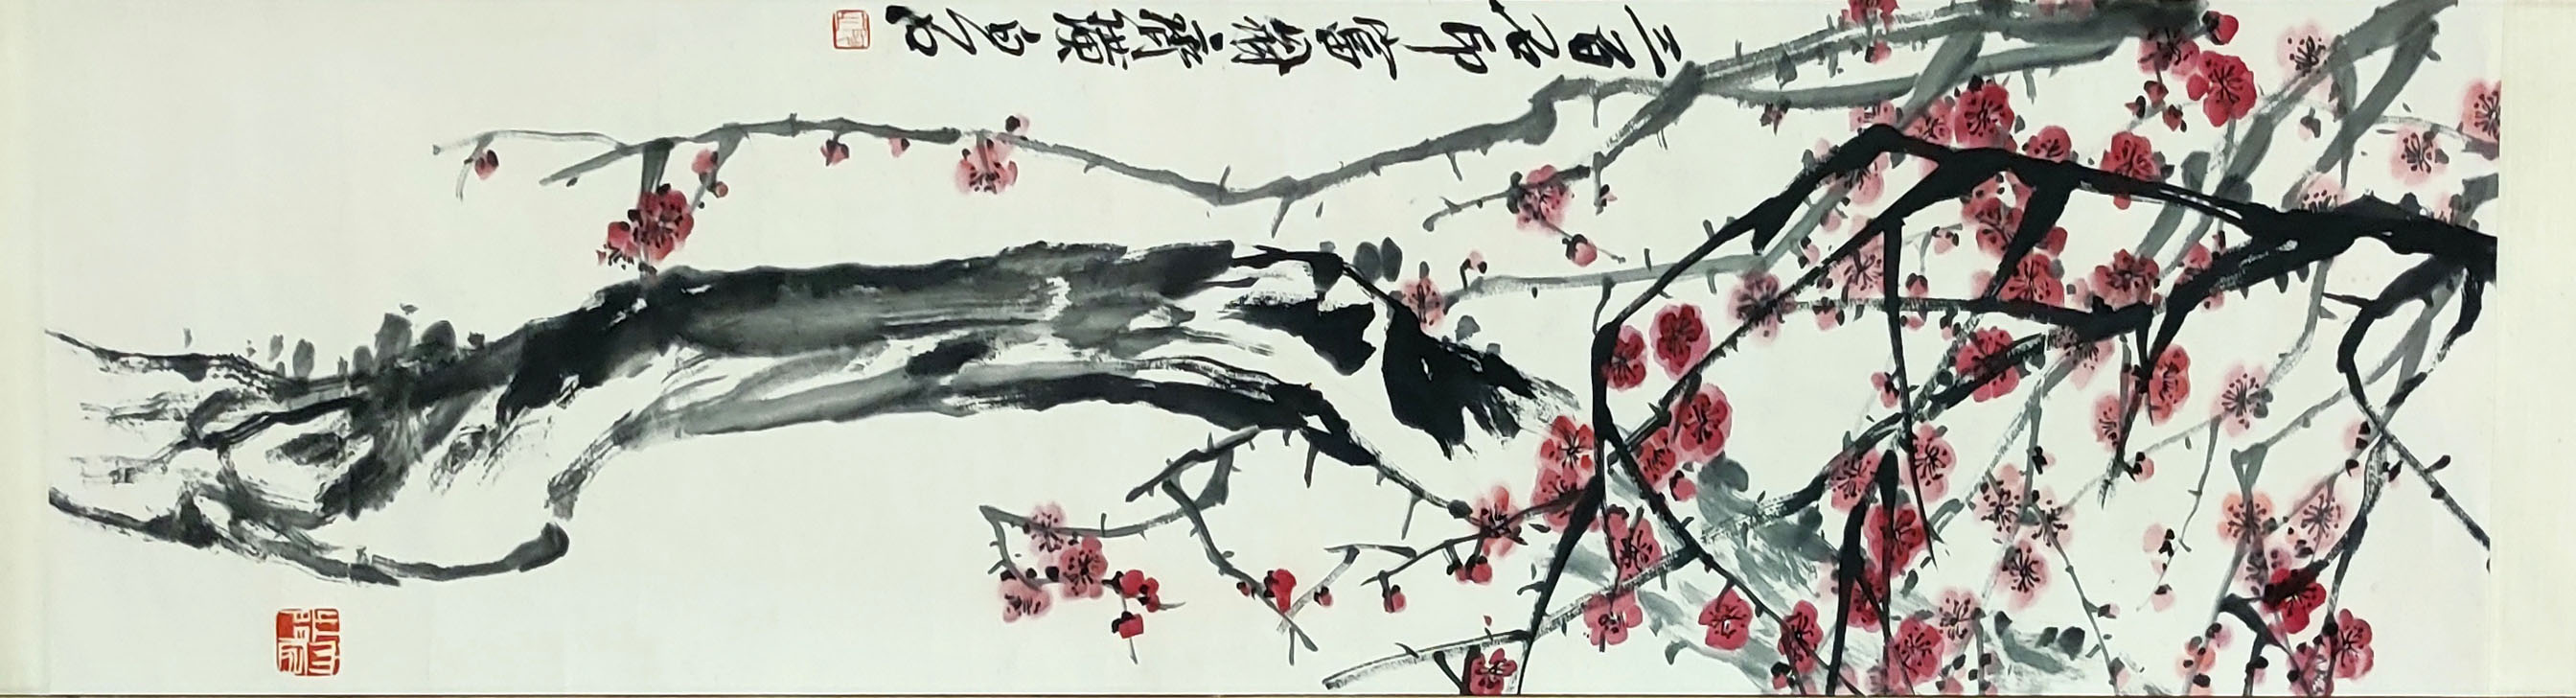 三百石印富翁齊璜白石